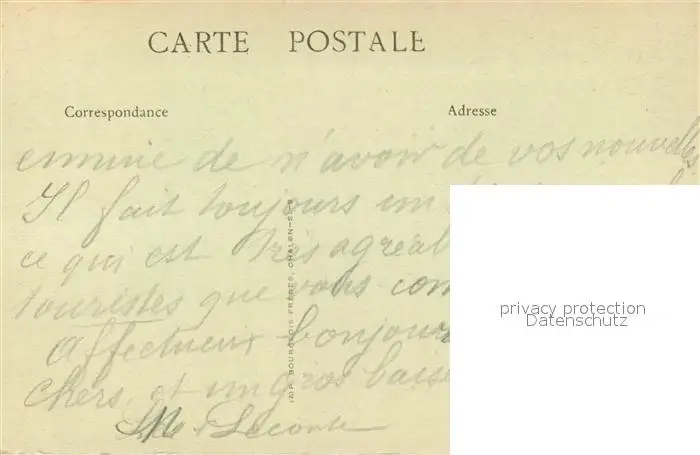 CARTE POSTALE
Correspondance
Adresse
ennuie de n'avoir de vos nouvelles
Il fait toujours un
ce qui est très agréabl
touristes que vous com
Affectueux bonjour
chers, et un gros baise
Lecomte
IMP. BOURGEOIS FRÈRES, CHALON-S-S
privacy protection
Datenschutz